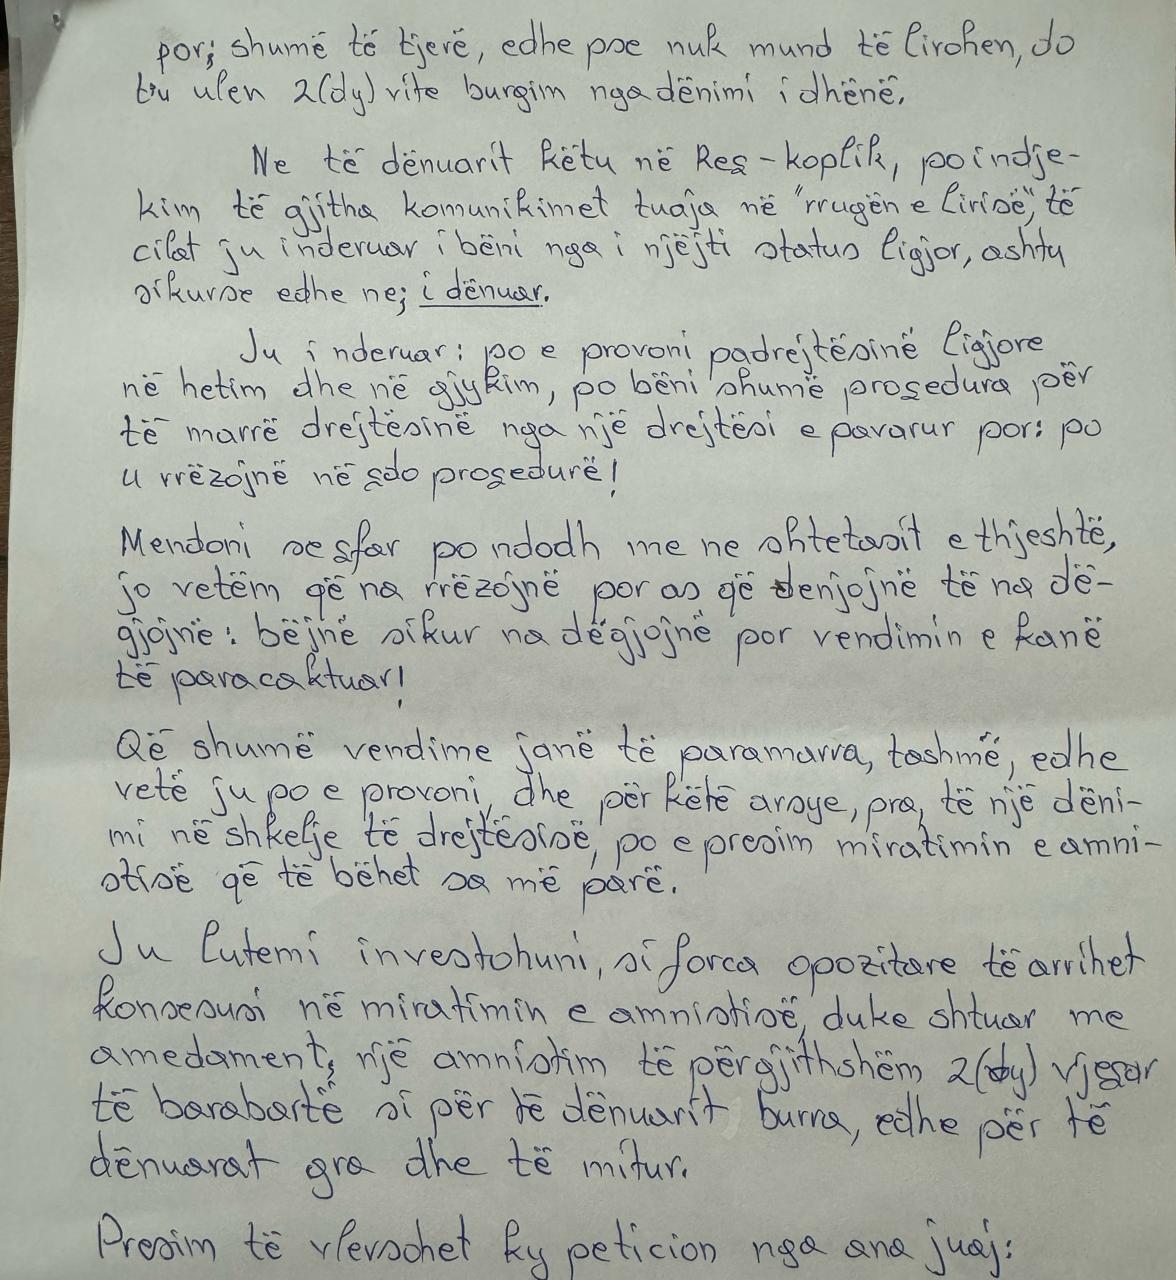 por; shumë të tjerë, edhe pse nuk mund të lirohen, do
t'u ulen 2(dy) vite burgim nga dënimi i dhënë.
Ne të dënuarit këtu në Reç-koplik, po indje-
kim të gjitha komunikimet tuaja në "rrugën e lirisë", të
cilat ju inderuar i bëni nga i njëjti status ligjor, ashtu
sikurse edhe ne; i dënuar.
Ju inderuar: po e provoni padrejtësinë ligjore
në hetim dhe në gjykim, po bëni shumë proçedura për
të marrë drejtësinë nga një drejtësi e pavarur por: po
u rrëzojnë në çdo proçedurë!
Mendoni se çfar po ndodh me ne shtetasit e thjeshtë,
jo vetëm që na rrëzojnë por as që denjojnë të na dë-
gjojnë: bëjnë sikur na dëgjojnë por vendimin e kanë
të paracaktuar!
Që shumë vendime janë të paramarra, tashmë, edhe
vetë ju po e provoni, dhe për këtë arsye, pra, të një dëni-
mi në shkelje të drejtësisë, po e presim miratimin e amni-
stisë që të bëhet sa më parë.
Ju lutemi investohuni, si forca opozitare të arrihet
konsesusi në miratimin e amnistisë, duke shtuar me
amedament, një amnistim të përgjithshëm 2(dy) vjeçar
të barabartë si për të dënuarit burra, edhe për të
dënuarat gra dhe të mitur.
Presim të vlersohet ky peticion nga ana juaj: